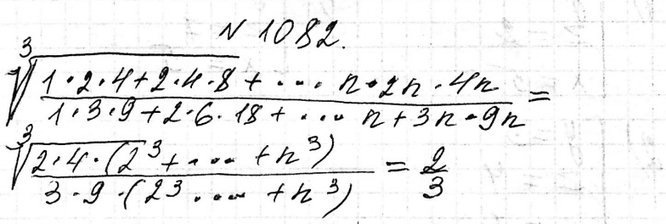 N 1082.
∛(1•2•4+2•4•8+ ... n•2n•4n / 1•3•9+2•6•18+ ... n+3n•9n) =
∛(2•4•(2³+ ... +n³) / 3•9•(2³ ... +n³)) = 2/3